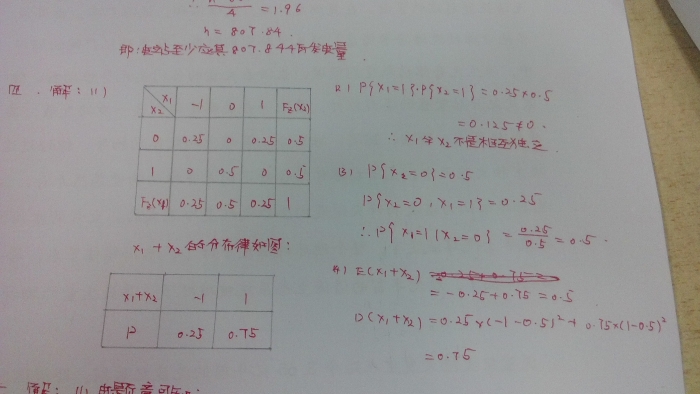 ∴ 4 = 1.96
n = 807.84
即:电站至少应具807.844所发电量
四、解:(1)
X2 X1 -1 0 1 F2(X2)
0 0.25 0 0.25 0.5
1 0 0.5 0 0.5
0.25 0.5 0.25 1
X1 + X2的分布律如图:
X1+X2 -1 1
P 0.25 0.75
(2) P{X1=1}·P{X2=1} = 0.25×0.5
= 0.125 ≠ 0.
∴ X1与X2不是相互独立
(3) P{X2=0} = 0.5
P{X2=0, X1=1} = 0.25
∴ P{X1=1|X2=0} = 0.25/0.5 = 0.5.
(4) E(X1+X2)
= -0.25+0.75 = 0.5
D(X1+X2) = 0.25×(-1-0.5)²+0.75×(1-0.5)²
= 0.75
解:(1)由题意可知: